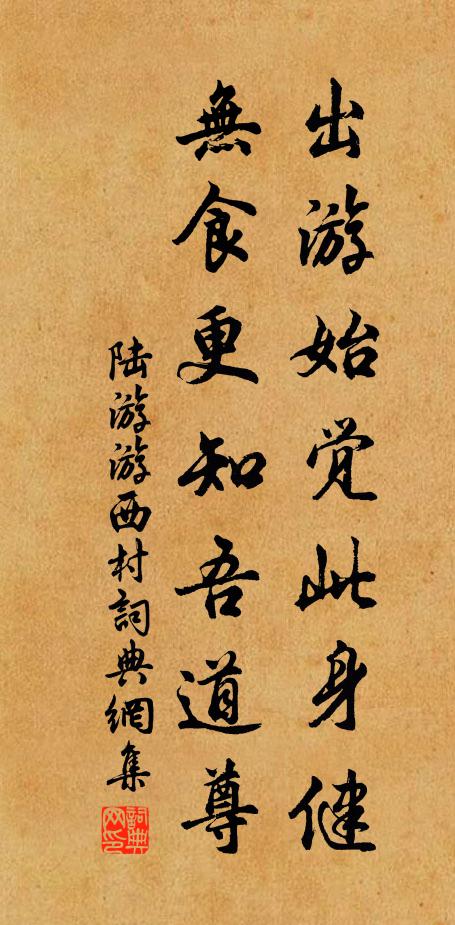 出游始觉此身健
無食更知吾道尊
陆游游西村詞典網集
詞典網印